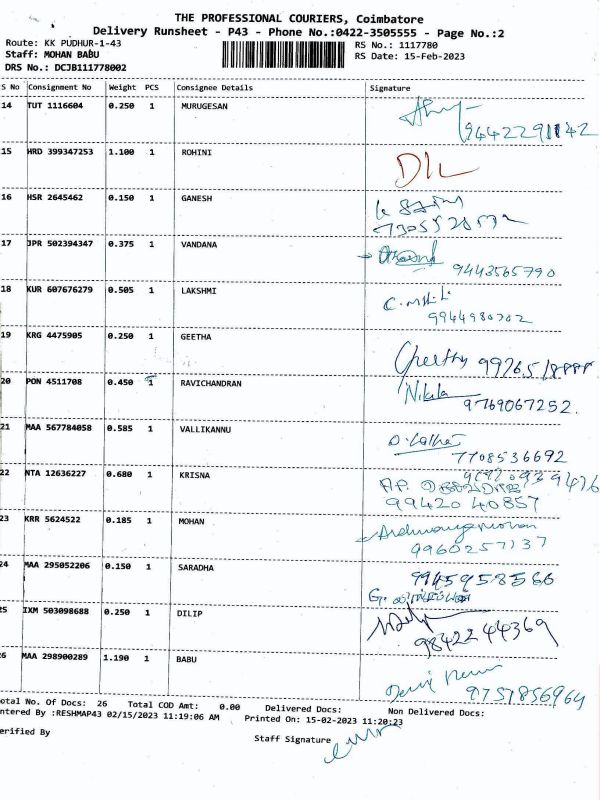 THE PROFESSIONAL COURIERS, Coimbatore
Delivery Runsheet - P43 - Phone No.:0422-3505555 - Page No.:2
Route: KK PUDHUR-1-43
RS No.: 1117780
Staff: MOHAN BABU
RS Date: 15-Feb-2023
DRS No.: DCJB111778002
S No Consignment No Weight PCS Consignee Details Signature
14 TUT 1116604 0.250 1 MURUGESAN
15 HRD 399347253 1.100 1 ROHINI
16 HSR 2645462 0.150 1 GANESH
17 JPR 502394347 0.375 1 VANDANA
9443565790
18 KUR 607676279 0.505 1 LAKSHMI
9944980702
19 KRG 4475905 0.250 1 GEETHA
Geetha
20 PON 4511708 0.450 1 RAVICHANDRAN
Nikila 9769067252.
21 MAA 567784058 0.585 1 VALLIKANNU
7708536692
22 NTA 12636227 0.680 1 KRISNA
99420 40857
23 KRR 5624522 0.185 1 MOHAN
9960257137
24 MAA 295052206 0.150 1 SARADHA
9945958566
25 IXM 503098688 0.250 1 DILIP
9842244369
26 MAA 298900289 1.190 1 BABU
9751856964
otal No. Of Docs: 26 Total COD Amt: 0.00 Delivered Docs: Non Delivered Docs:
ntered By :RESHMAP43 02/15/2023 11:19:06 AM Printed On: 15-02-2023 11:20:23
erified By
Staff Signature